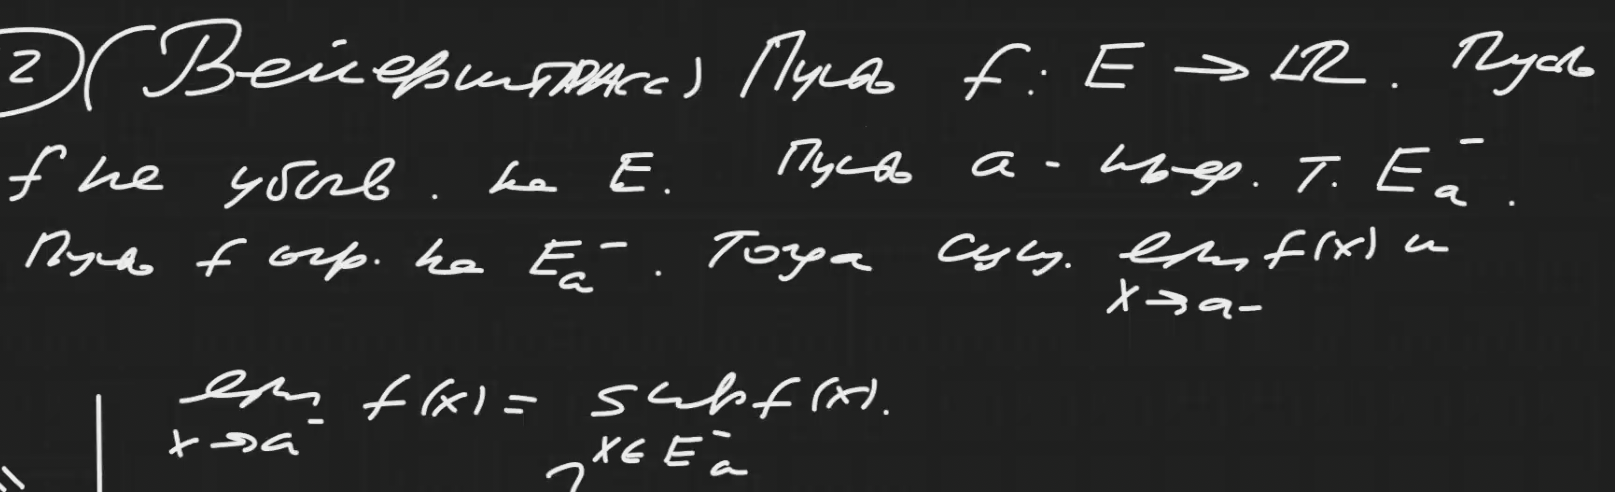 2) (Вейерштрасс) Пусть f: E → ℝ. Пусть
f не убыв. на E. Пусть a - пред. т. E⁻ₐ.
Пусть f огр. на E⁻ₐ. Тогда сущ. lim f(x) и
x→a-
lim f(x) = sup f(x).
x→a⁻ x∈E⁻ₐ